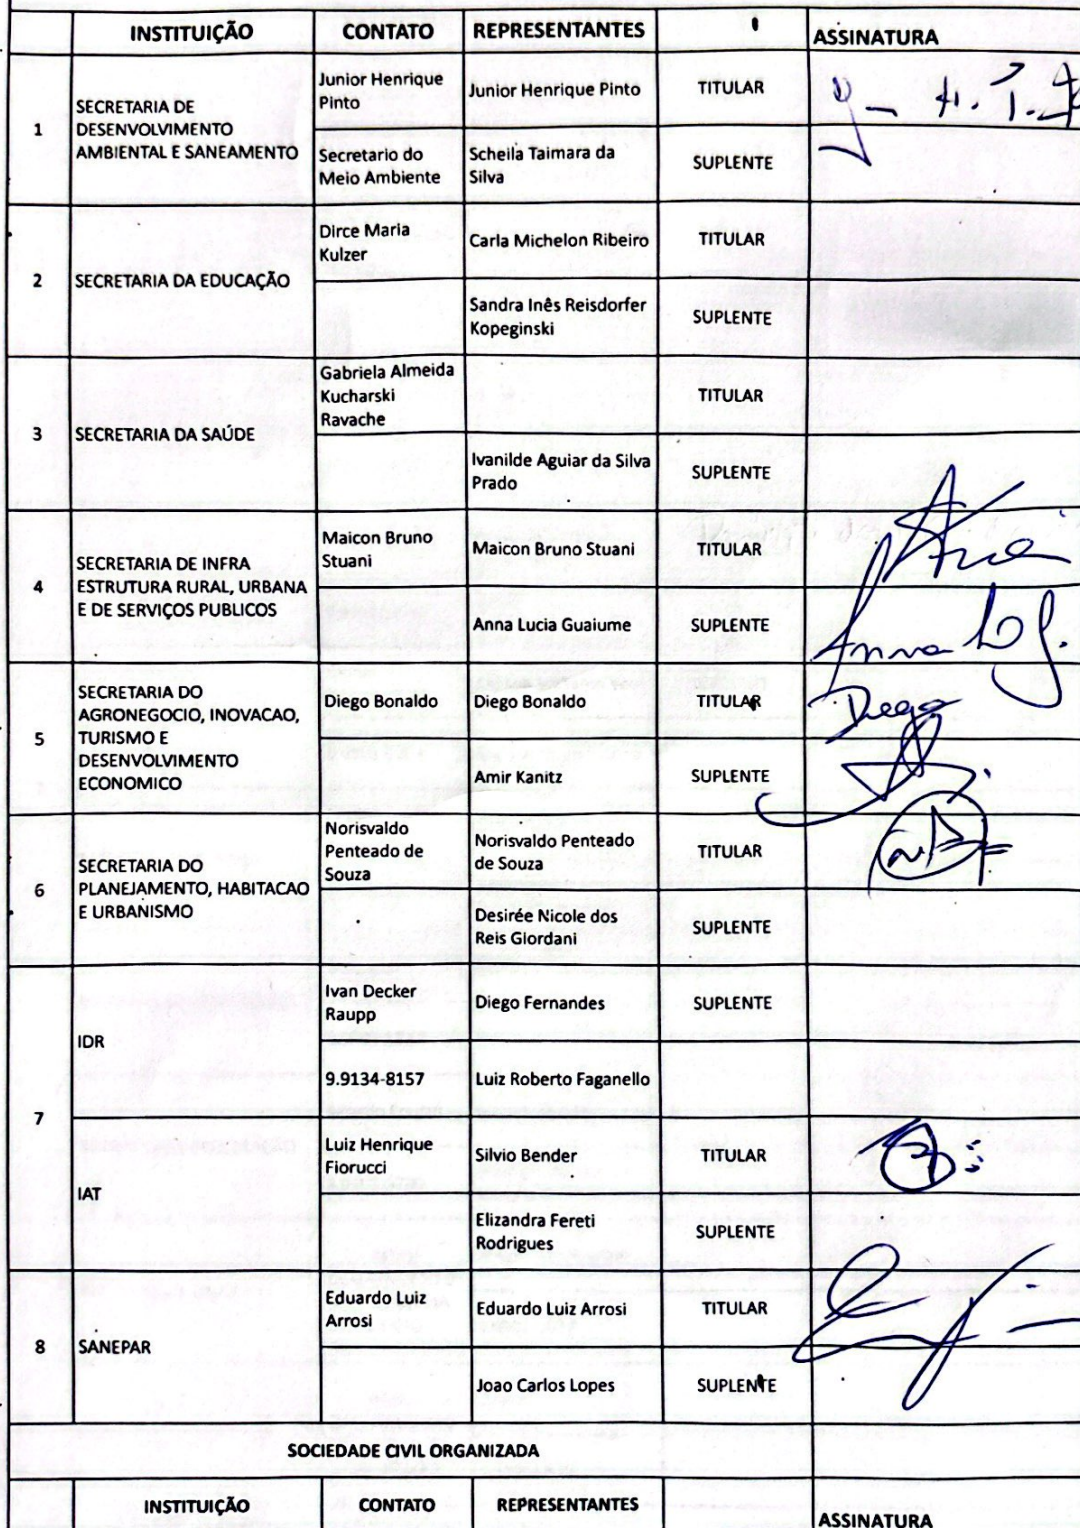 INSTITUIÇÃO CONTATO REPRESENTANTES ASSINATURA
1
SECRETARIA DE
DESENVOLVIMENTO
AMBIENTAL E SANEAMENTO
Junior Henrique
Pinto
Junior Henrique Pinto
TITULAR
Secretario do
Meio Ambiente
Scheila Taimara da
Silva
SUPLENTE
2
SECRETARIA DA EDUCAÇÃO
Dirce Maria
Kulzer
Carla Michelon Ribeiro
TITULAR
Sandra Inês Reisdorfer
Kopeginski
SUPLENTE
3
SECRETARIA DA SAÚDE
Gabriela Almeida
Kucharski
Ravache
TITULAR
Ivanilde Aguiar da Silva
Prado
SUPLENTE
4
SECRETARIA DE INFRA
ESTRUTURA RURAL, URBANA
E DE SERVIÇOS PUBLICOS
Maicon Bruno
Stuani
Maicon Bruno Stuani
TITULAR
Anna Lucia Guaiume
SUPLENTE
Anna
5
SECRETARIA DO
AGRONEGOCIO, INOVACAO,
TURISMO E
DESENVOLVIMENTO
ECONOMICO
Diego Bonaldo
Diego Bonaldo
TITULAR
Diego
Amir Kanitz
SUPLENTE
6
SECRETARIA DO
PLANEJAMENTO, HABITACAO
E URBANISMO
Norisvaldo
Penteado de
Souza
Norisvaldo Penteado
de Souza
TITULAR
Desirée Nicole dos
Reis Giordani
SUPLENTE
7
IDR
Ivan Decker
Raupp
Diego Fernandes
SUPLENTE
9.9134-8157
Luiz Roberto Faganello
IAT
Luiz Henrique
Fiorucci
Silvio Bender
TITULAR
Elizandra Fereti
Rodrigues
SUPLENTE
8
SANEPAR
Eduardo Luiz
Arrosi
Eduardo Luiz Arrosi
TITULAR
Joao Carlos Lopes
SUPLENTE
SOCIEDADE CIVIL ORGANIZADA
INSTITUIÇÃO CONTATO REPRESENTANTES ASSINATURA